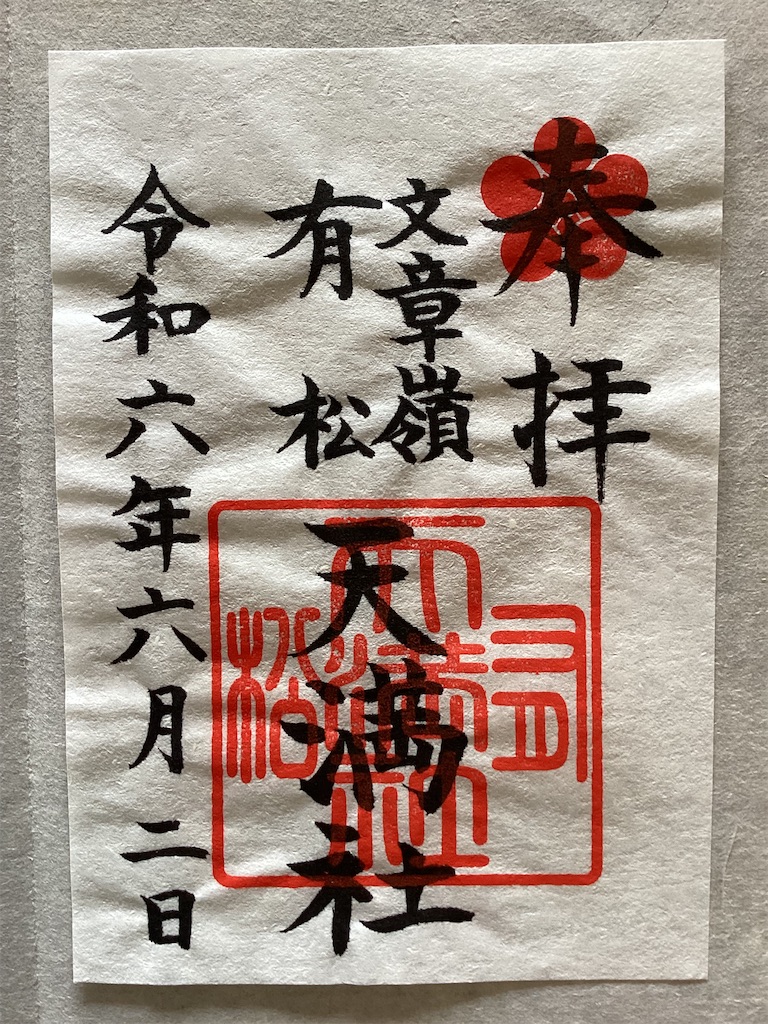 奉拝
文章嶺
有松
天満社
令和六年六月二日
有松天満社